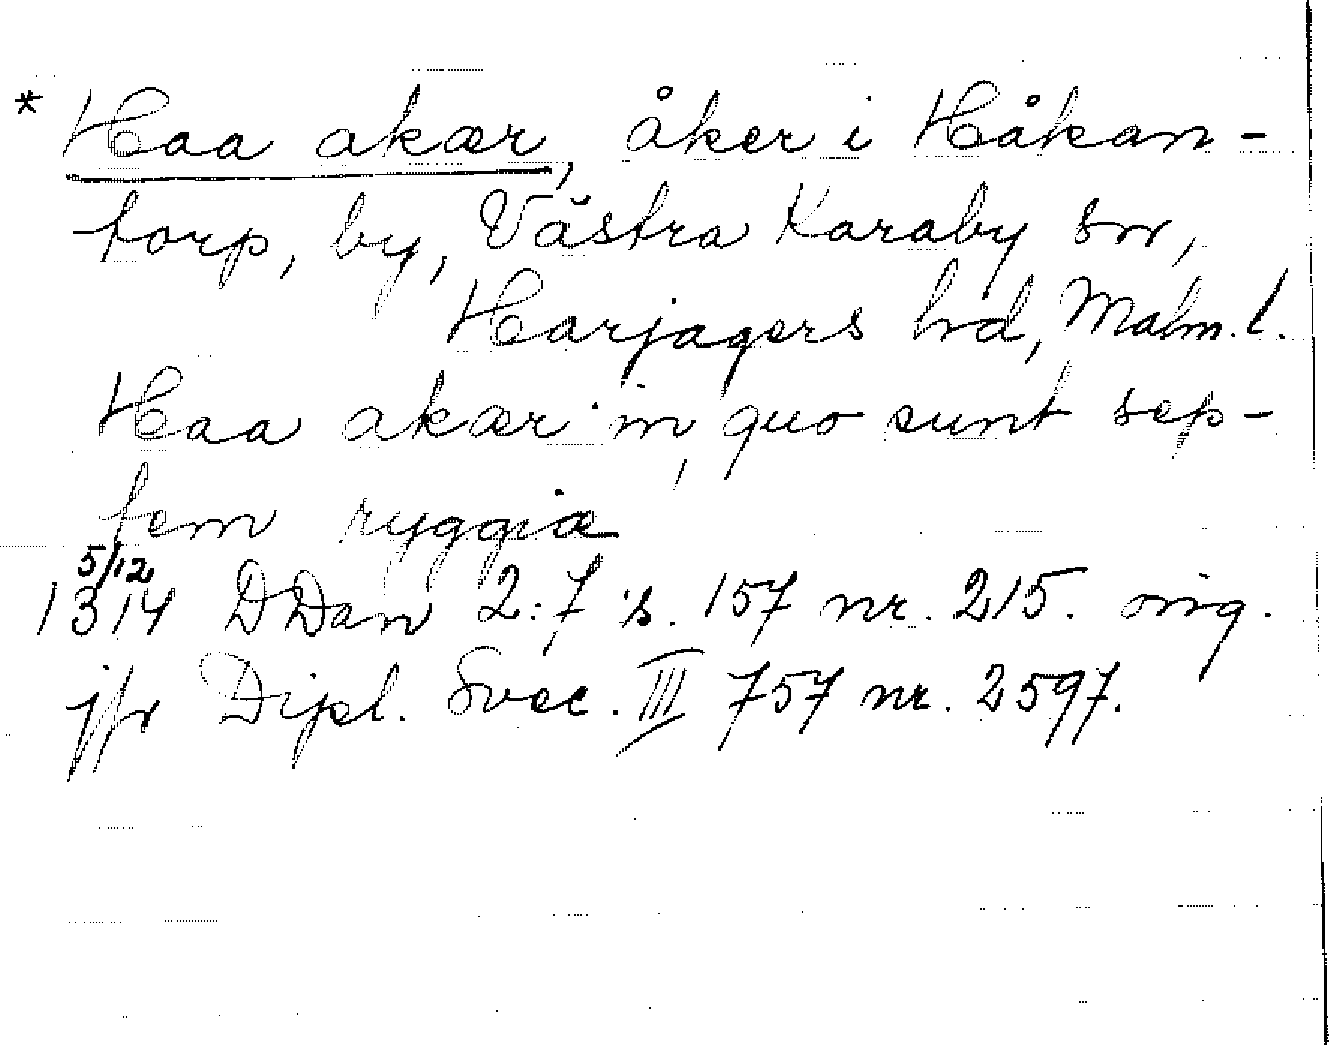 * Haa akær, åker i Håkan-
torp, by, Västra Karaby sn,
Harjagers hd, Malm. l.
Haa akær in, quo sunt sep-
tem ryggiæ
5/12
1314 DDan 2:7 s. 157 nr. 215. orig.
jfr Dipl. Svec. III 757 nr. 2597.